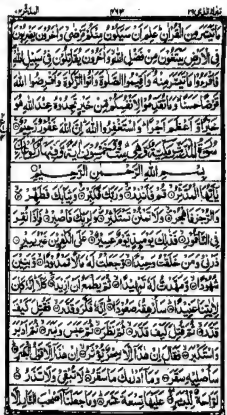 مَا تَيَسَّرَ مِنَ الْقُرْاٰنِ عَلِمَ اَنْ سَيَكُوْنُ مِنْكُمْ مَّرْضٰى وَاٰخَرُوْنَ يَضْرِبُوْنَ
فِى الْاَرْضِ يَبْتَغُوْنَ مِنْ فَضْلِ اللّٰهِ وَاٰخَرُوْنَ يُقَاتِلُوْنَ فِىْ سَبِيْلِ اللّٰهِ
فَاقْرَءُوْا مَا تَيَسَّرَ مِنْهُ وَاَقِيْمُوا الصَّلٰوةَ وَاٰتُوا الزَّكٰوةَ وَاَقْرِضُوا اللّٰهَ
قَرْضًا حَسَنًا وَمَا تُقَدِّمُوْا لِاَنْفُسِكُمْ مِّنْ خَيْرٍ تَجِدُوْهُ عِنْدَ اللّٰهِ هُوَ
خَيْرًا وَّاَعْظَمَ اَجْرًا وَاسْتَغْفِرُوا اللّٰهَ اِنَّ اللّٰهَ غَفُوْرٌ رَّحِيْمٌ
بِسْمِ اللّٰهِ الرَّحْمٰنِ الرَّحِيْمِ
يٰاَيُّهَا الْمُدَّثِّرُ قُمْ فَاَنْذِرْ وَرَبَّكَ فَكَبِّرْ وَثِيَابَكَ فَطَهِّرْ
وَالرُّجْزَ فَاهْجُرْ وَلَا تَمْنُنْ تَسْتَكْثِرُ وَلِرَبِّكَ فَاصْبِرْ فَاِذَا نُقِرَ
فِى النَّاقُوْرِ فَذٰلِكَ يَوْمَئِذٍ يَّوْمٌ عَسِيْرٌ عَلَى الْكٰفِرِيْنَ غَيْرُ يَسِيْرٍ
ذَرْنِىْ وَمَنْ خَلَقْتُ وَحِيْدًا وَّجَعَلْتُ لَهٗ مَالًا مَّمْدُوْدًا وَّبَنِيْنَ
شُهُوْدًا وَّمَهَّدْتُّ لَهٗ تَمْهِيْدًا ثُمَّ يَطْمَعُ اَنْ اَزِيْدَ كَلَّا اِنَّهٗ كَانَ
لِاٰيٰتِنَا عَنِيْدًا سَاُرْهِقُهٗ صَعُوْدًا اِنَّهٗ فَكَّرَ وَقَدَّرَ فَقُتِلَ كَيْفَ
قَدَّرَ ثُمَّ قُتِلَ كَيْفَ قَدَّرَ ثُمَّ نَظَرَ ثُمَّ عَبَسَ وَبَسَرَ ثُمَّ اَدْبَرَ
وَاسْتَكْبَرَ فَقَالَ اِنْ هٰذَا اِلَّا سِحْرٌ يُّؤْثَرُ اِنْ هٰذَا اِلَّا قَوْلُ الْبَشَرِ
سَاُصْلِيْهِ سَقَرَ وَمَا اَدْرٰىكَ مَا سَقَرُ لَا تُبْقِىْ وَلَا تَذَرُ
لَوَّاحَةٌ لِّلْبَشَرِ عَلَيْهَا تِسْعَةَ عَشَرَ وَمَا جَعَلْنَا اَصْحٰبَ النَّارِ اِلَّا